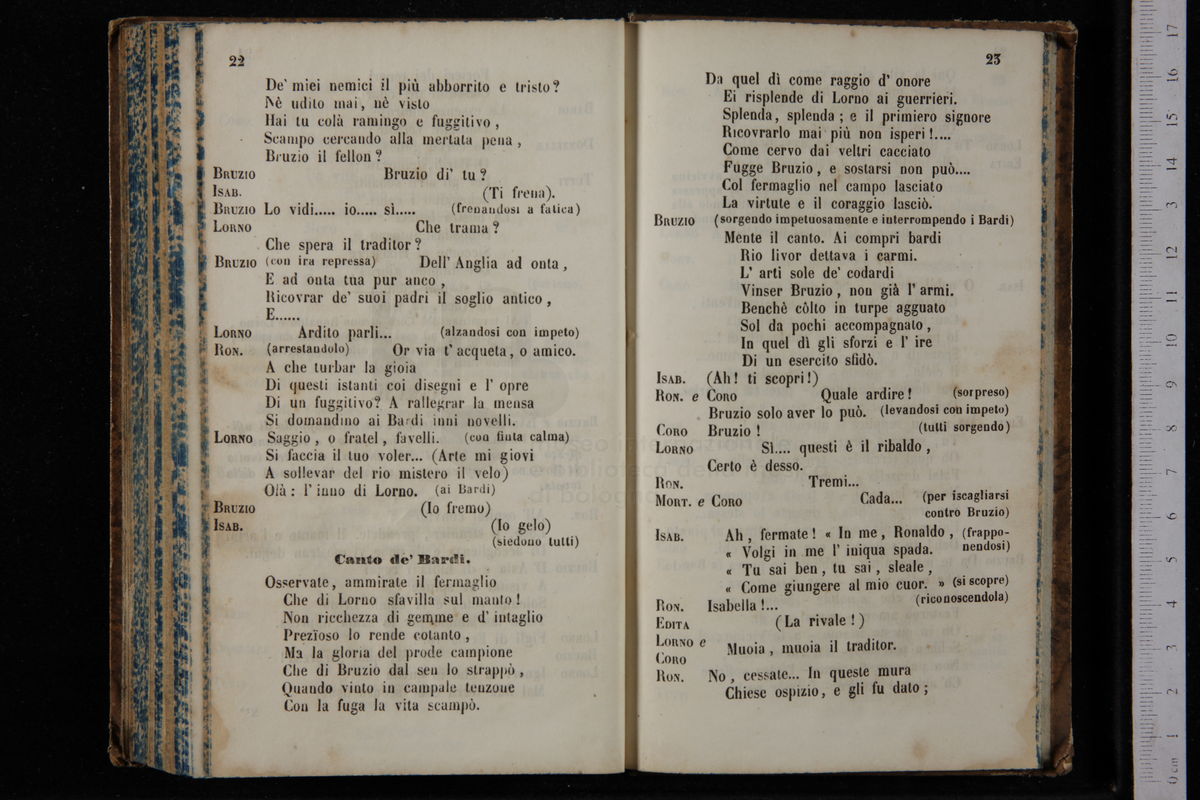 22
De' miei nemici il più abborrito e tristo?
Nè udito mai, nè visto
Hai tu colà ramingo e fuggitivo,
Scampo cercando alla mertata pena,
Bruzio il fellon?
BRUZIO Bruzio di' tu?
ISAB. (Ti frena).
BRUZIO Lo vidi..... io..... sì..... (frenandosi a fatica)
LORNO Che trama?
Che spera il traditor?
BRUZIO (con ira repressa) Dell' Anglia ad onta,
E ad onta tua pur anco,
Ricovrar de' suoi padri il soglio antico,
E......
LORNO Ardito parli... (alzandosi con impeto)
RON. (arrestandolo) Or via t' acqueta, o amico.
A che turbar la gioia
Di questi istanti coi disegni e l' opre
Di un fuggitivo? A rallegrar la mensa
Si domandino ai Bardi inni novelli.
LORNO Saggio, o fratel, favelli. (con finta calma)
Si faccia il tuo voler... (Arte mi giovi
A sollevar del rio mistero il velo)
Olà: l' inno di Lorno. (ai Bardi)
BRUZIO (Io fremo)
ISAB. (Io gelo)
(siedono tutti)
Canto de' Bardi.
Osservate, ammirate il fermaglio
Che di Lorno sfavilla sul manto!
Non ricchezza di gemme e d' intaglio
Prezïoso lo rende cotanto,
Ma la gloria del prode campione
Che di Bruzio dal sen lo strappò,
Quando vinto in campale tenzone
Con la fuga la vita scampò.
23
Da quel dì come raggio d' onore
Ei risplende di Lorno ai guerrieri.
Splenda, splenda; e il primiero signore
Ricovrarlo mai più non isperi!....
Come cervo dai veltri cacciato
Fugge Bruzio, e sostarsi non può....
Col fermaglio nel campo lasciato
La virtute e il coraggio lasciò.
BRUZIO (sorgendo impetuosamente e interrompendo i Bardi)
Mente il canto. Ai compri bardi
Rio livor dettava i carmi.
L' arti sole de' codardi
Vinser Bruzio, non già l' armi.
Benchè còlto in turpe agguato
Sol da pochi accompagnato,
In quel dì gli sforzi e l' ire
Di un esercito sfidò.
ISAB. (Ah! ti scopri!)
RON. e CORO Quale ardire! (sorpreso)
Bruzio solo aver lo può. (levandosi con impeto)
CORO Bruzio! (tutti sorgendo)
LORNO Sì.... questi è il ribaldo,
Certo è desso.
RON. Tremi...
MORT. e CORO Cada... (per iscagliarsi
contro Bruzio)
ISAB. Ah, fermate! « In me, Ronaldo, (frappo-
« Volgi in me l' iniqua spada. nendosi)
« Tu sai ben, tu sai, sleale,
« Come giungere al mio cuor. » (si scopre)
RON. Isabella!... (riconoscendola)
EDITA (La rivale!)
LORNO e
CORO Muoia, muoia il traditor.
RON. No, cessate... In queste mura
Chiese ospizio, e gli fu dato;
0 cm 1 2 3 4 5 6 7 8 9 10 11 12 13 14 15 16 17